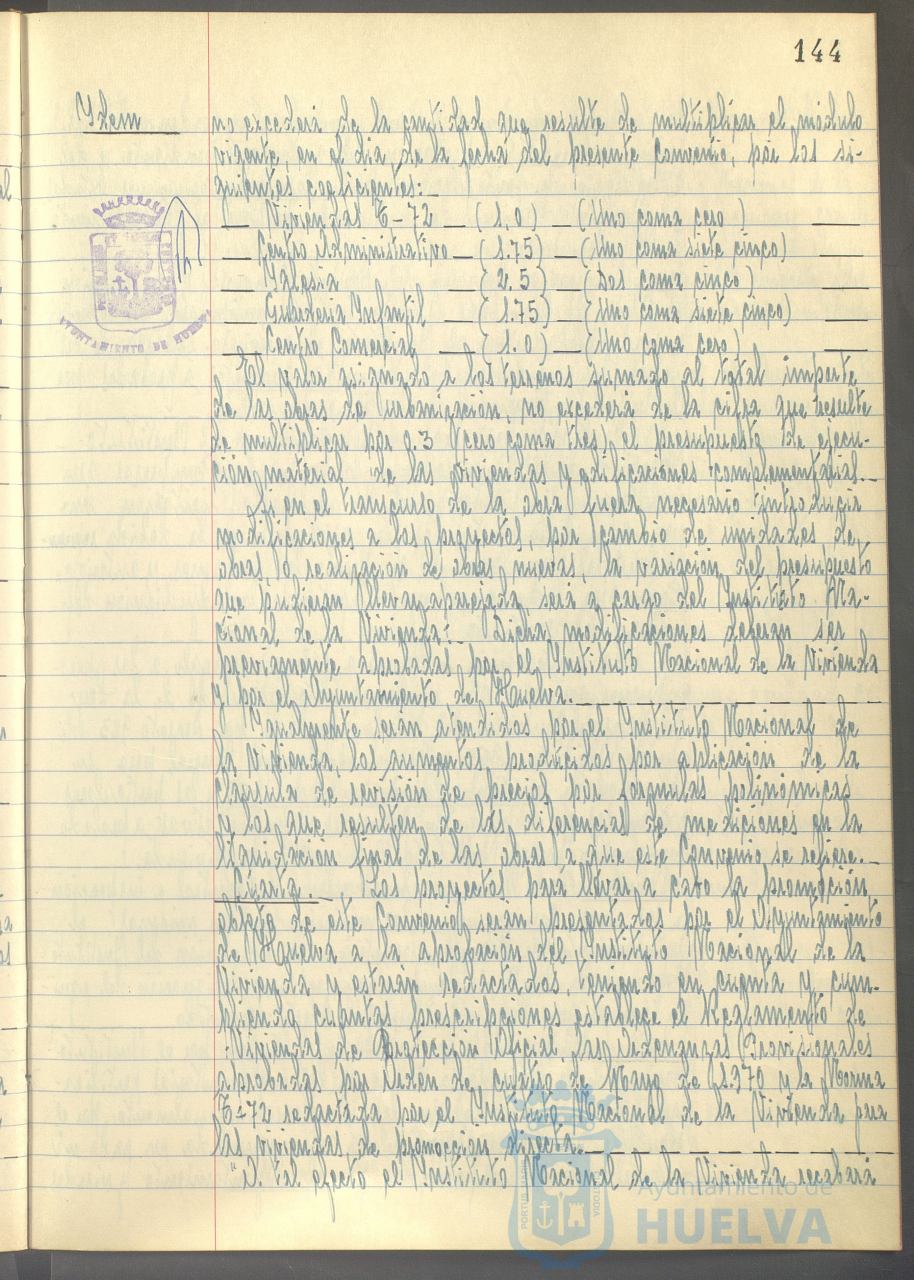 144
Idem
no excederá de la cantidad que resulte de multiplicar el módulo
vigente, en el día, de la fecha del presente Convenio, por los si-
guientes coeficientes:_
__ Viviendas T-72 __ (1.0) __ (Uno coma cero) __
__ Centro Administrativo __ (1.75) __ (Uno coma siete cinco) __
__ Iglesia __ (2.5) __ (Dos coma cinco) __
__ Guardería Infantil __ (1.75) __ (Uno coma siete cinco) __
__ Centro Comercial __ (1.0) __ (Uno coma cero) __
AYUNTAMIENTO DE HUELVA
El valor asignado a los terrenos sumado al total importe
de las obras de urbanización, no excederá de la cifra que resulte
de multiplicar por 0.3 (cero coma tres) el presupuesto de ejecu-
ción material de las viviendas y edificaciones complementarias._
Si en el transcurso de la obra fuera necesario introducir
modificaciones a los proyectos, por cambio de unidades de
obras, o realización de obras nuevas, la variación del presupuesto
que pudieran llevar aparejada será a cargo del Instituto Na-
cional de la Vivienda._ Dichas modificaciones deberán ser
previamente aprobadas por el Instituto Nacional de la Vivienda
y por el Ayuntamiento de Huelva.
Igualmente serán atendidos por el Instituto Nacional de
la Vivienda, los aumentos producidos por aplicación de la
cláusula de revisión de precios por formulas polinómicas
y los que resulten de las diferencias de mediciones en la
liquidación final de las obras a que este Convenio se refiere._
Cuarta._ Los proyectos para llevar a cabo la promoción
objeto de este Convenio serán presentados por el Ayuntamiento
de Huelva a la aprobación del Instituto Nacional de la
Vivienda y estarán redactados, teniendo en cuenta y cum-
pliendo cuantas prescripciones establece el Reglamento de
Viviendas de Protección Oficial, las Ordenanzas Provisionales
aprobadas por Orden de cuatro de Mayo de 1.970 y la Norma
T-72 redactada por el Instituto Nacional de la Vivienda para
las viviendas, de promoción directa.
A tal efecto el Instituto Nacional de la Vivienda recabará
Ayuntamiento de
HUELVA